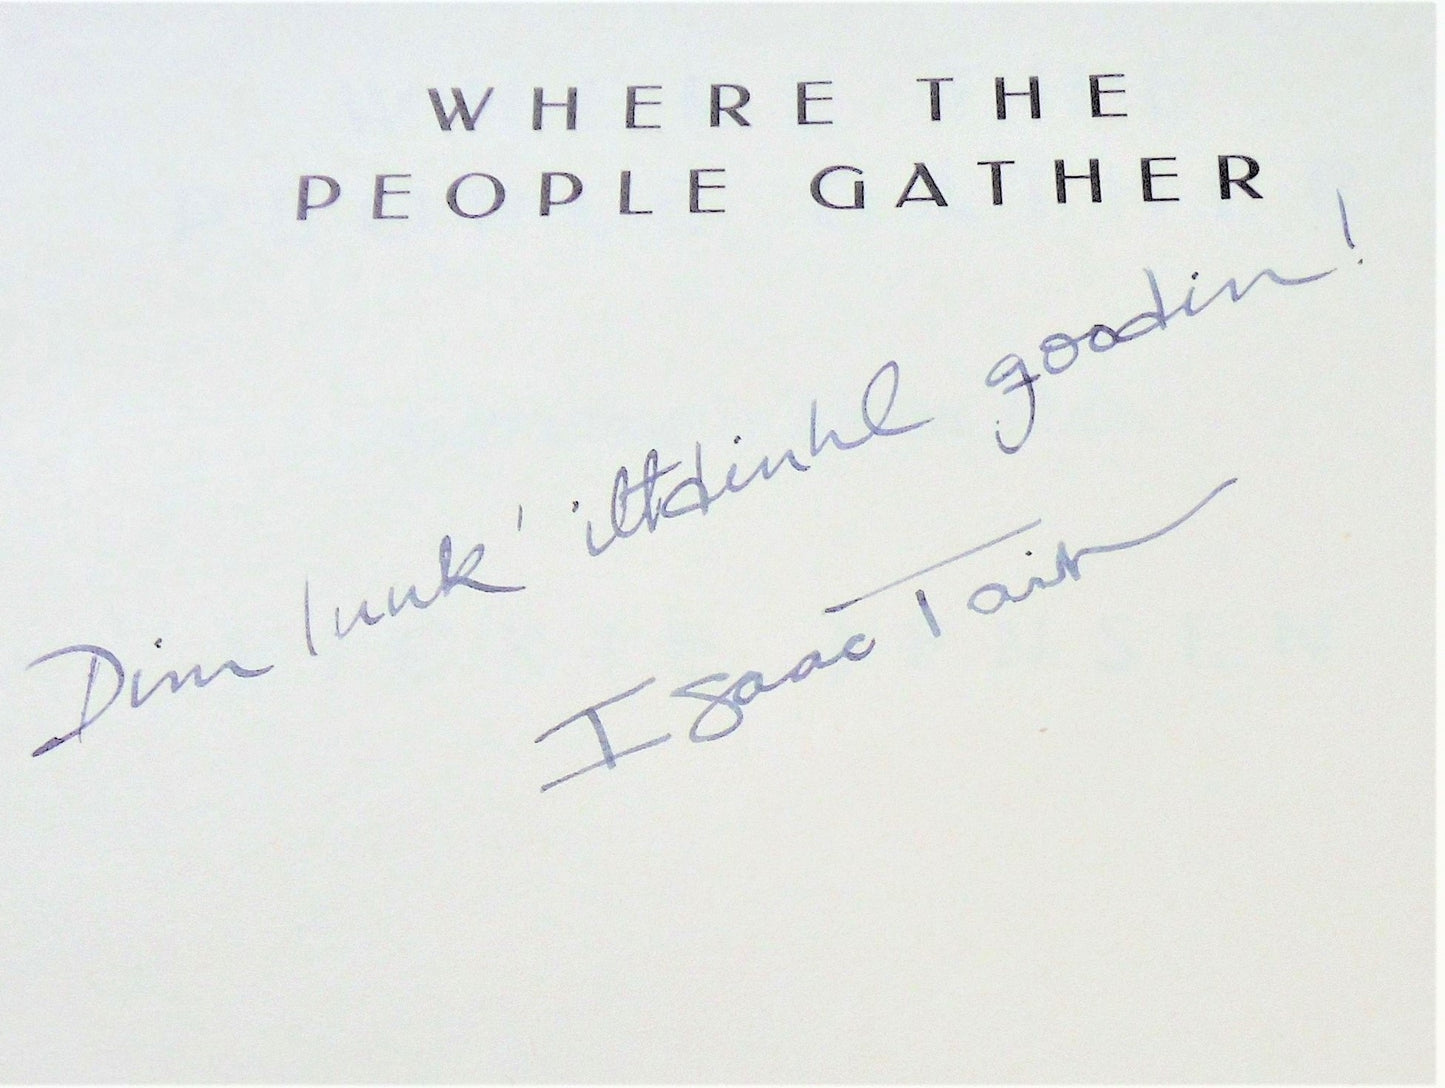 WHERE THE
PEOPLE GATHER
Dim luuk' iltdinhl goodin!
Isaac Tait